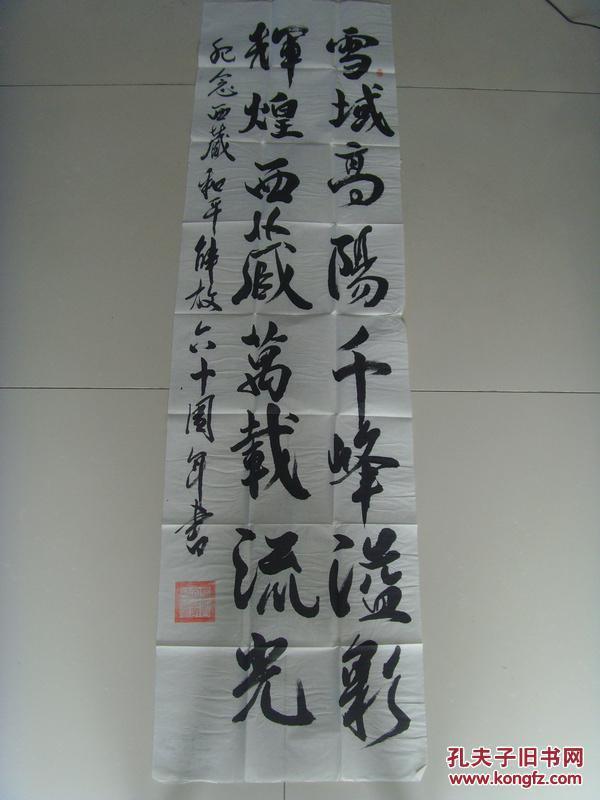 雪域高陽千峰溢彩
輝煌西藏萬載流光
紀念西藏和平解放六十周年書
孔夫子旧书网
www.kongfz.com